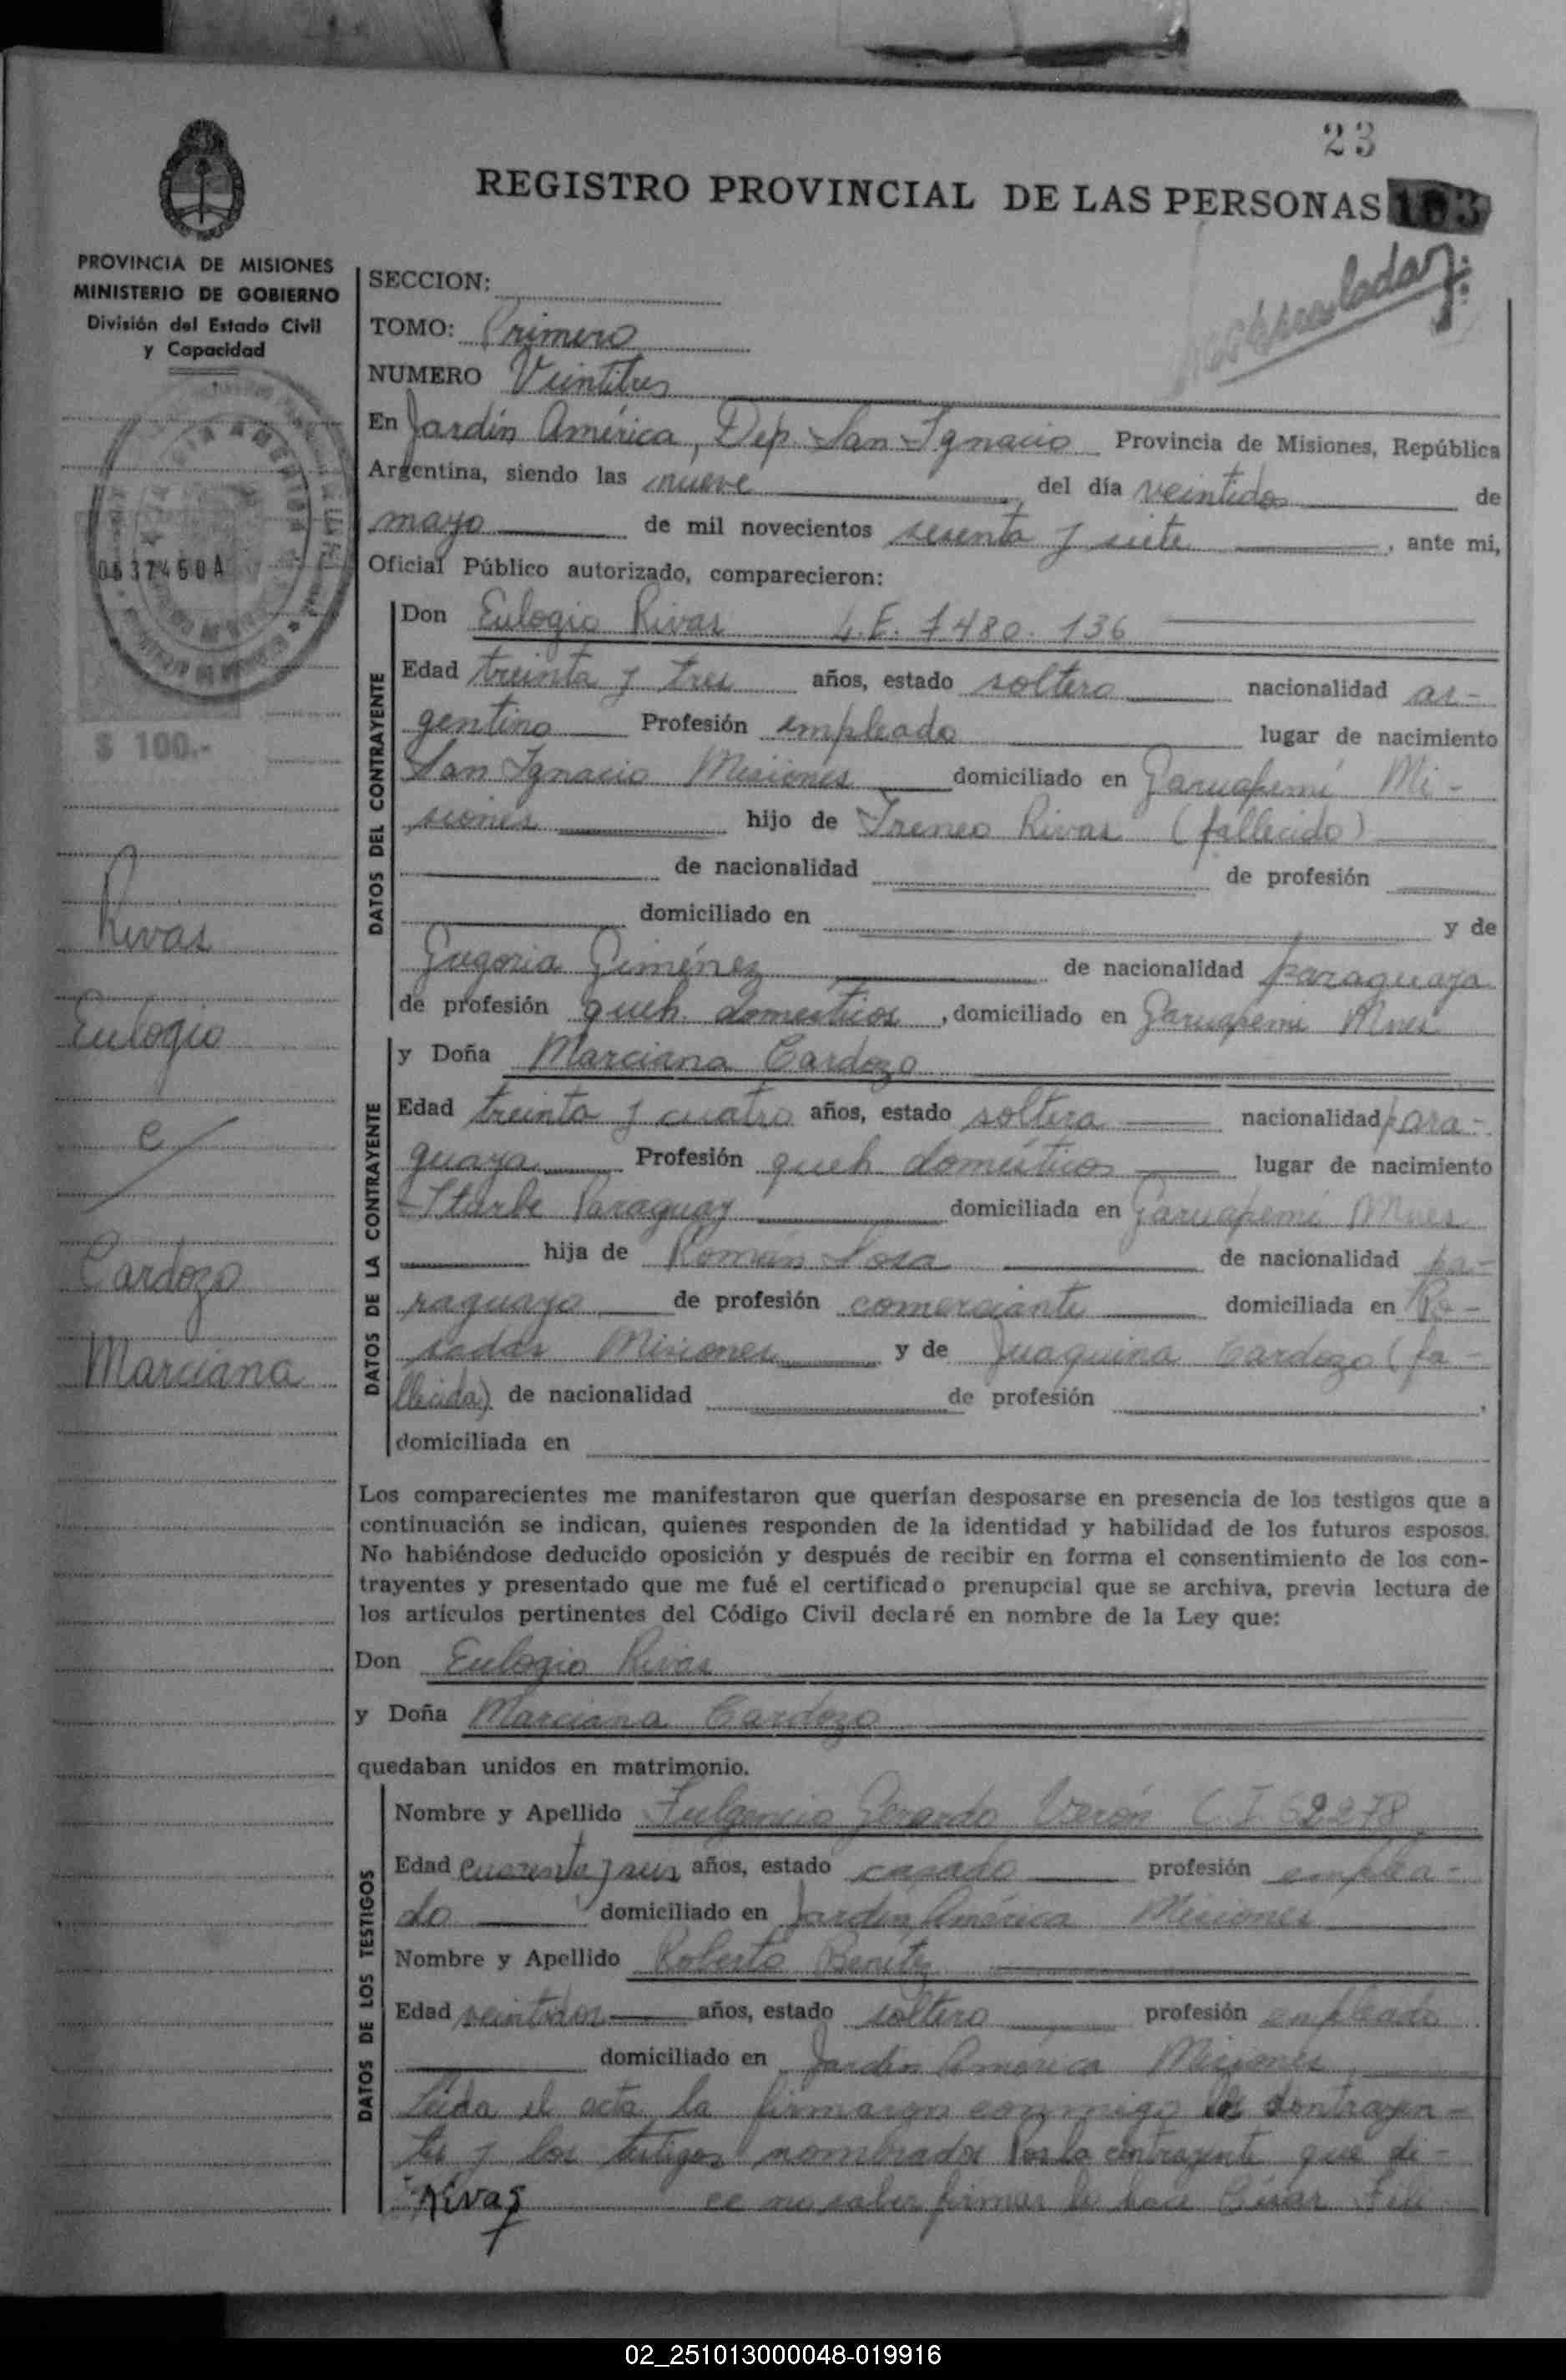 23
REGISTRO PROVINCIAL DE LAS PERSONAS 103
PROVINCIA DE MISIONES
MINISTERIO DE GOBIERNO
División del Estado Civil
y Capacidad
0537450 A
$ 100.-
Rivas
Eulogio
e/
Cardozo
Marciana
SECCION:
TOMO: Primero
NUMERO Veintitres
En Jardín América, Dep. San Ignacio Provincia de Misiones, República
Argentina, siendo las nueve del día veintidos de
mayo de mil novecientos sesenta y siete, ante mi,
Oficial Público autorizado, comparecieron:
DATOS DEL CONTRAYENTE
Don Eulogio Rivas L.E. 7480.136
Edad treinta y tres años, estado soltero nacionalidad ar-
gentino Profesión empleado lugar de nacimiento
San Ignacio Misiones domiciliado en Garuapemí Mi-
siones hijo de Ireneo Rivas (fallecido)
de nacionalidad de profesión
domiciliado en y de
Gregoria Giménez de nacionalidad paraguaya
de profesión queh. domesticos, domiciliado en Garuapemi Mnes
DATOS DE LA CONTRAYENTE
y Doña Marciana Cardozo
Edad treinta y cuatro años, estado soltera nacionalidad para-
guaya Profesión queh domésticos lugar de nacimiento
Paraguay domiciliada en Garuapemí Mnes
hija de Román Sosa de nacionalidad pa-
raguayo de profesión comerciante domiciliada en Po-
sadas Misiones y de Juaquina Cardozo (fa-
llecida) de nacionalidad de profesión ,
domiciliada en
Los comparecientes me manifestaron que querían desposarse en presencia de los testigos que a
continuación se indican, quienes responden de la identidad y habilidad de los futuros esposos.
No habiéndose deducido oposición y después de recibir en forma el consentimiento de los con-
trayentes y presentado que me fué el certificado prenupcial que se archiva, previa lectura de
los artículos pertinentes del Código Civil declaré en nombre de la Ley que:
Don Eulogio Rivas
y Doña Marciana Cardozo
quedaban unidos en matrimonio.
DATOS DE LOS TESTIGOS
Nombre y Apellido Fulgencio Gerardo Verón C I 62278
Edad cuarenta y seis años, estado casado profesión emplea-
do domiciliado en Jardín América Misiones
Nombre y Apellido Roberto Benítez
Edad veintidos años, estado soltero profesión empleado
domiciliado en Jardín América Misiones
Leida el acta la firmaron conmigo los contrayen-
tes y los testigos nombrados Por la contrayente que di-
Rivas ce no saber firmar lo hace César Feli
02_251013000048-019916